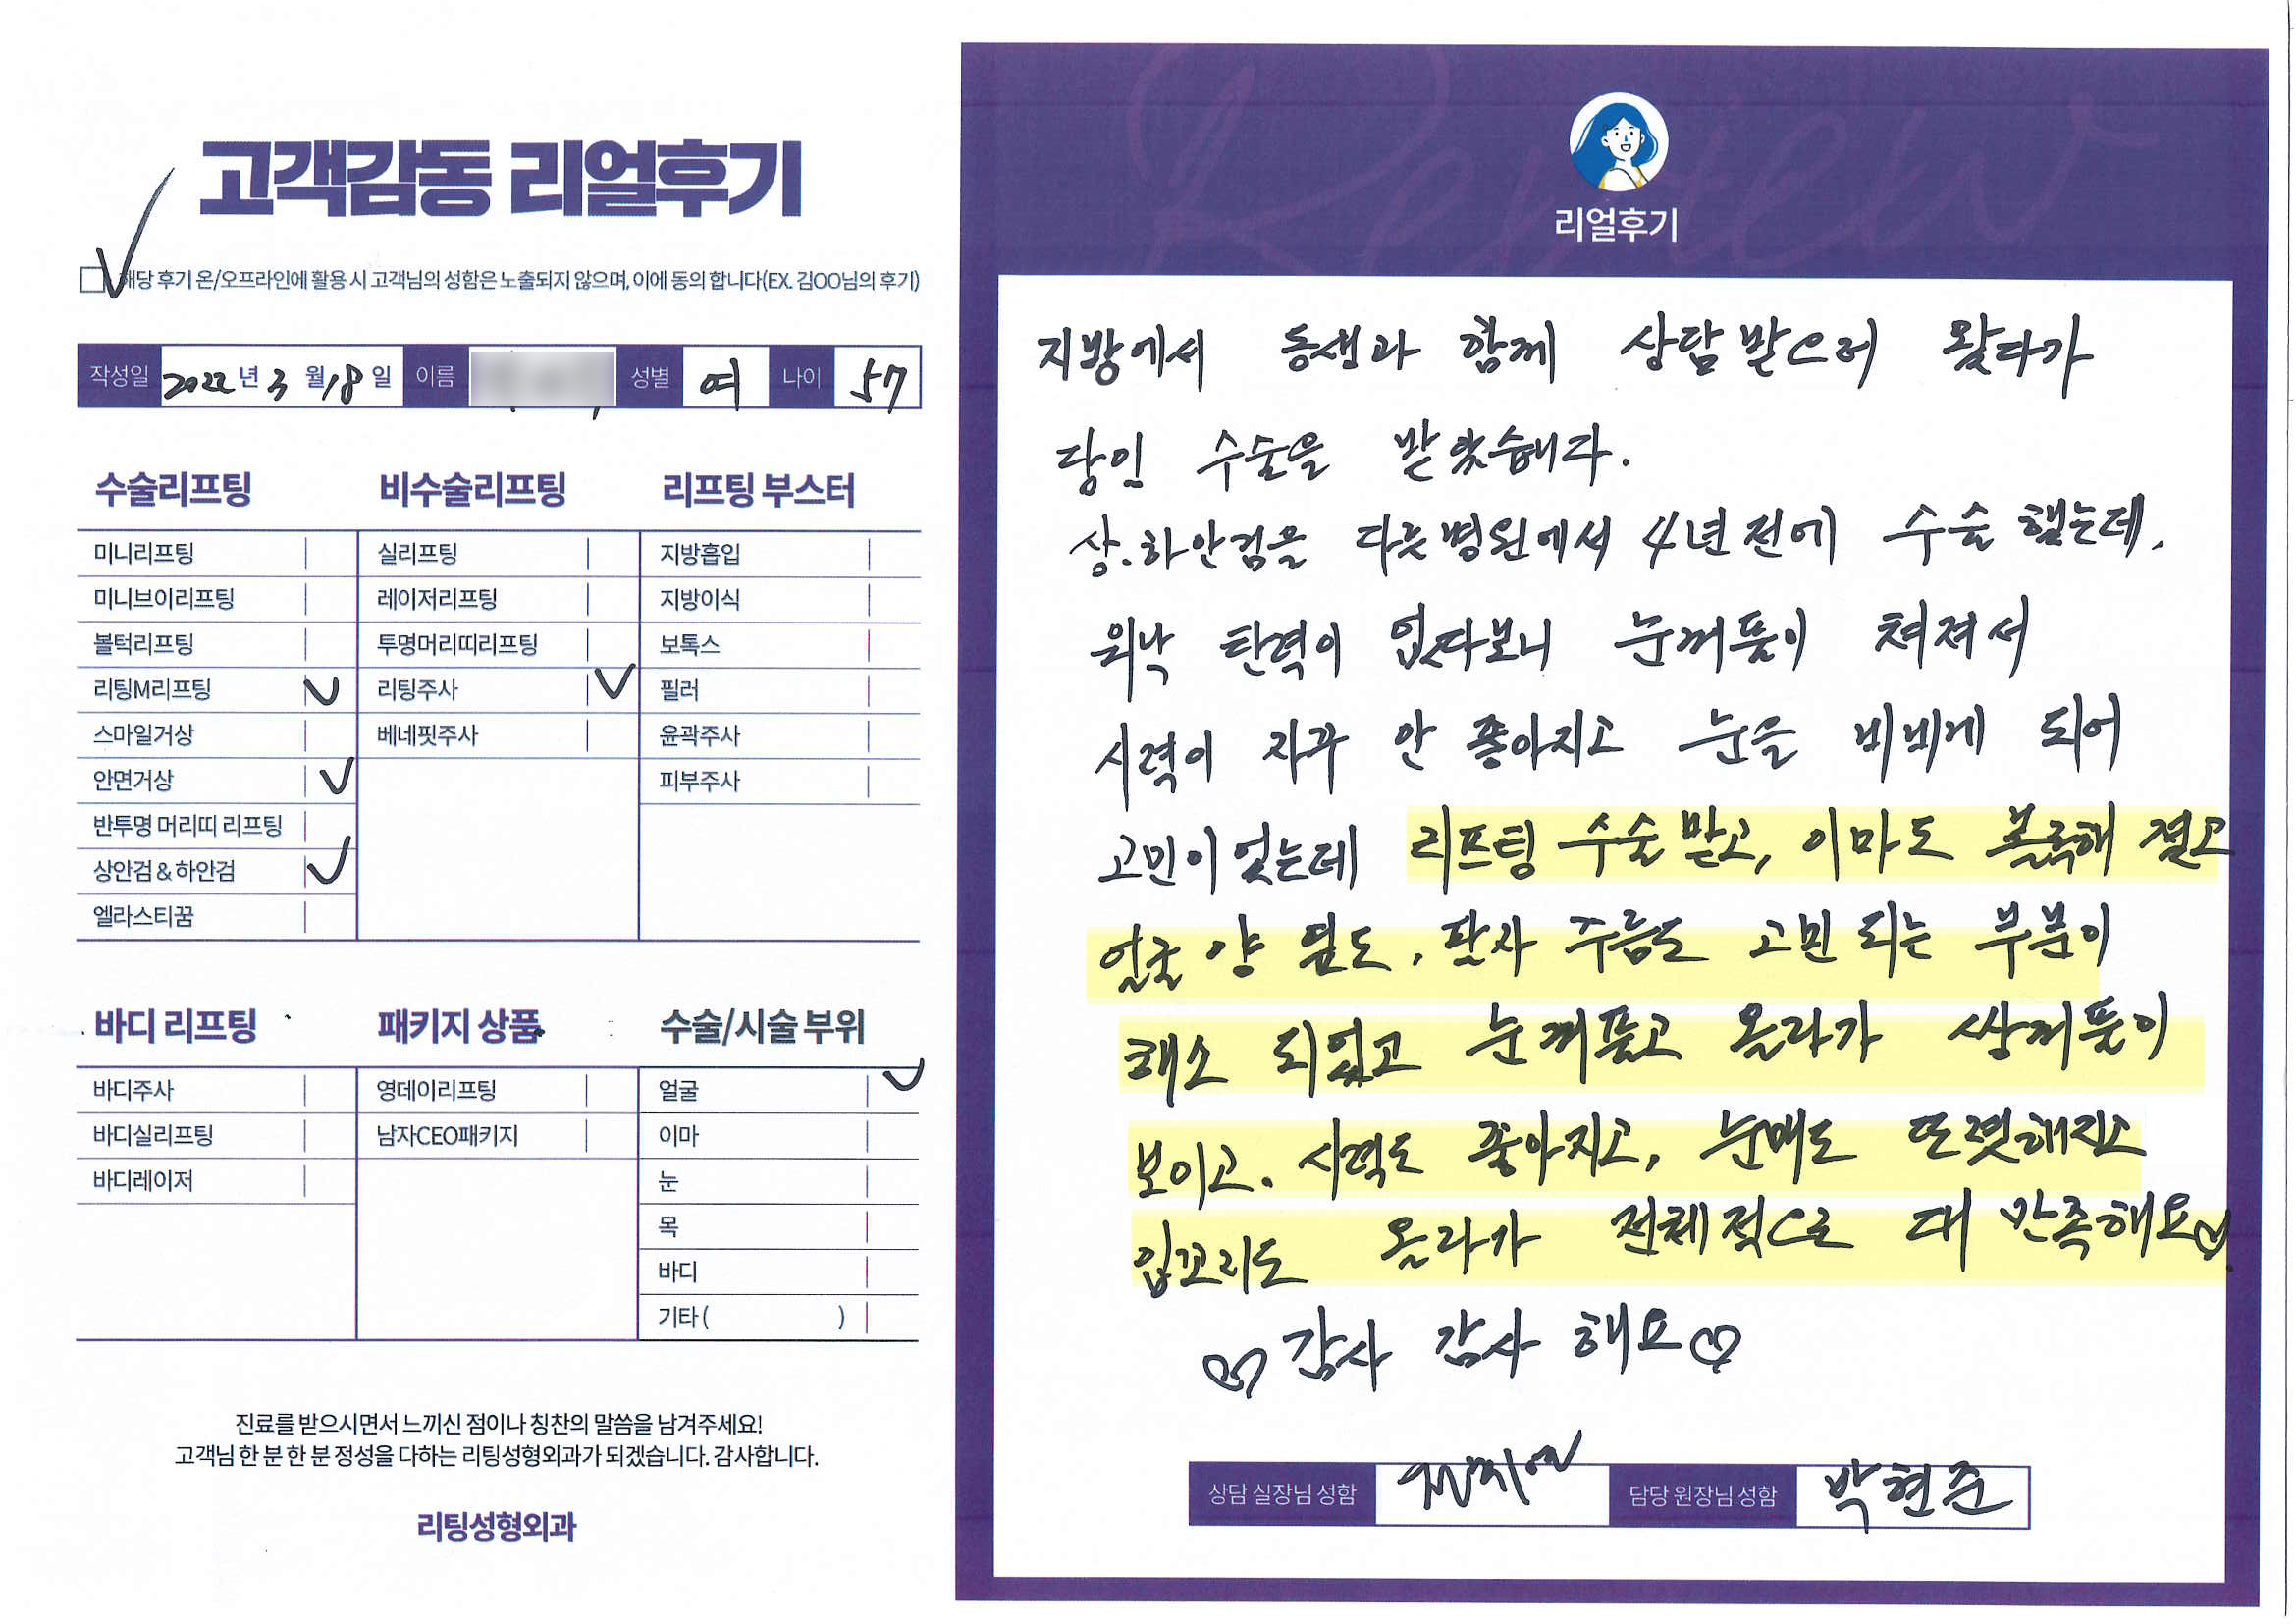 고객감동 리얼후기
해당 후기 온/오프라인에 활용 시 고객님의 성함은 노출되지 않으며, 이에 동의 합니다(EX. 김OO님의 후기)
작성일 2022 년 3 월 18 일 이름 성별 여 나이 57
수술리프팅
미니리프팅
미니브이리프팅
볼턱리프팅
리팅M리프팅
스마일거상
안면거상
반투명 머리띠 리프팅
상안검 & 하안검
엘라스티꿈
비수술리프팅
실리프팅
레이저리프팅
투명머리띠리프팅
리팅주사
베네핏주사
리프팅 부스터
지방흡입
지방이식
보톡스
필러
윤곽주사
피부주사
바디 리프팅
바디주사
바디실리프팅
바디레이저
패키지 상품
영데이리프팅
남자CEO패키지
수술/시술 부위
얼굴
이마
눈
목
바디
기타 ( )
진료를 받으시면서 느끼신 점이나 칭찬의 말씀을 남겨주세요!
고객님 한 분 한 분 정성을 다하는 리팅성형외과가 되겠습니다. 감사합니다.
리팅성형외과
Review
리얼후기
지방에서 동생과 함께 상담받으러 왔다가
당일 수술을 받았습니다.
상.하안검을 다른병원에서 4년전에 수술했는데,
워낙 탄력이 없다보니 눈꺼풀이 쳐져서
시력이 자꾸 안 좋아지고 눈을 비비게 되어
고민이 었는데 리프팅 수술받고, 이마도 볼륨해 졌고
얼굴 양 볼도, 팔자 주름도 고민 되는 부분이
해소 되었고 눈꺼풀고 올라가 쌍꺼풀이
보이고. 시력도 좋아지고, 눈매도 또렷해지고
입꼬리도 올라가 전체적으로 대 만족해요♡.
♡감사 감사 해요♡
상담 실장님 성함 담당 원장님 성함 박현준